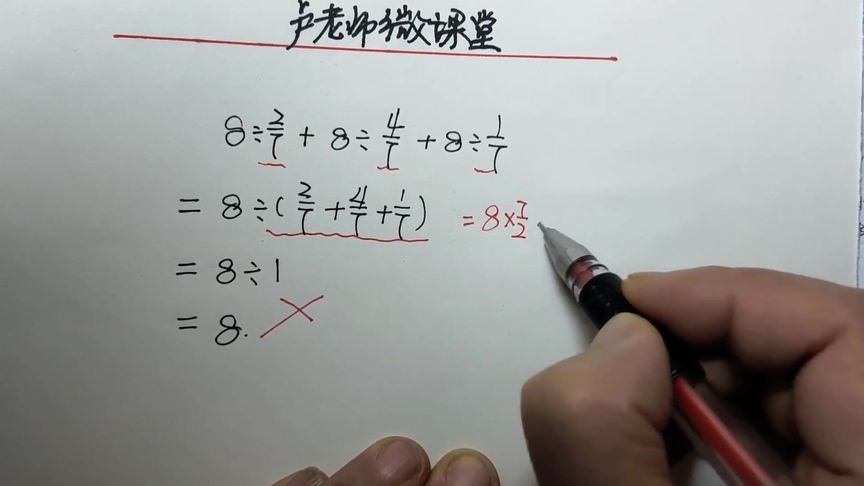 卢老师微课堂
8÷2/7+8÷4/7+8÷1/7
=8÷(2/7+4/7+1/7) =8×7/2
=8÷1
=8.